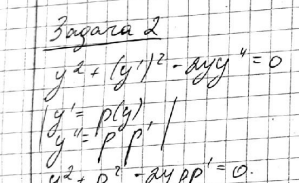 Задача 2
y² + (y')² - 2yy'' = 0
| y' = p(y) |
| y'' = p p' |
y² + p² - 2ypp' = 0.